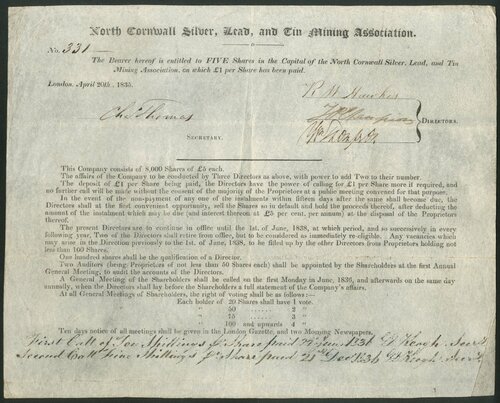 North Cornwall Silver, Lead, and Tin Mining Association.
No. 331
The Bearer hereof is entitled to FIVE Shares in the Capital of the North Cornwall Silver, Lead, and Tin
Mining Association, on which £1 per Share has been paid.
London, April 20th, 1835.
Chs. Thomas
SECRETARY.
DIRECTORS.
This Company consists of 8,000 Shares of £5 each.
The affairs of the Company to be conducted by Three Directors as above, with power to add Two to their number.
The deposit of £1 per Share being paid, the Directors have the power of calling for £1 per Share more if required, and
no further call will be made without the consent of the majority of the Proprietors at a public meeting convened for that purpose.
In the event of the non-payment of any one of the instalments within fifteen days after the same shall become due, the
Directors shall at the first convenient opportunity, sell the Shares so in default and hold the proceeds thereof, after deducting the
amount of the instalment which may be due (and interest thereon at £5 per cent. per annum) at the disposal of the Proprietors
thereof.
The present Directors are to continue in office until the 1st. of June, 1838, at which period, and so successively in every
following year, Two of the Directors shall retire from office, but to be considered as immediately re-eligible. Any vacancies which
may arise in the Direction previously to the 1st. of June, 1838, to be filled up by the other Directors from Proprietors holding not
less than 100 Shares.
One hundred shares shall be the qualification of a Director.
Two Auditors (being Proprietors of not less than 50 Shares each) shall be appointed by the Shareholders at the first Annual
General Meeting, to audit the accounts of the Directors.
A General Meeting of the Shareholders shall be called on the first Monday in June, 1836, and afterwards on the same day
annually, when the Directors shall lay before the Shareholders a full statement of the Company's affairs.
At all General Meetings of Shareholders, the right of voting shall be as follows:—
Each holder of 20 Shares shall have 1 vote.
" 50 ...... 2 "
" 75 ...... 3 "
" 100 and upwards 4 "
Ten days notice of all meetings shall be given in the London Gazette, and two Morning Newspapers.
First Call of Shillings pr Share paid 1836 D Keogh Secr
Second Call Five Shillings pr Share paid 21st Decr 1836 D Keogh Secr